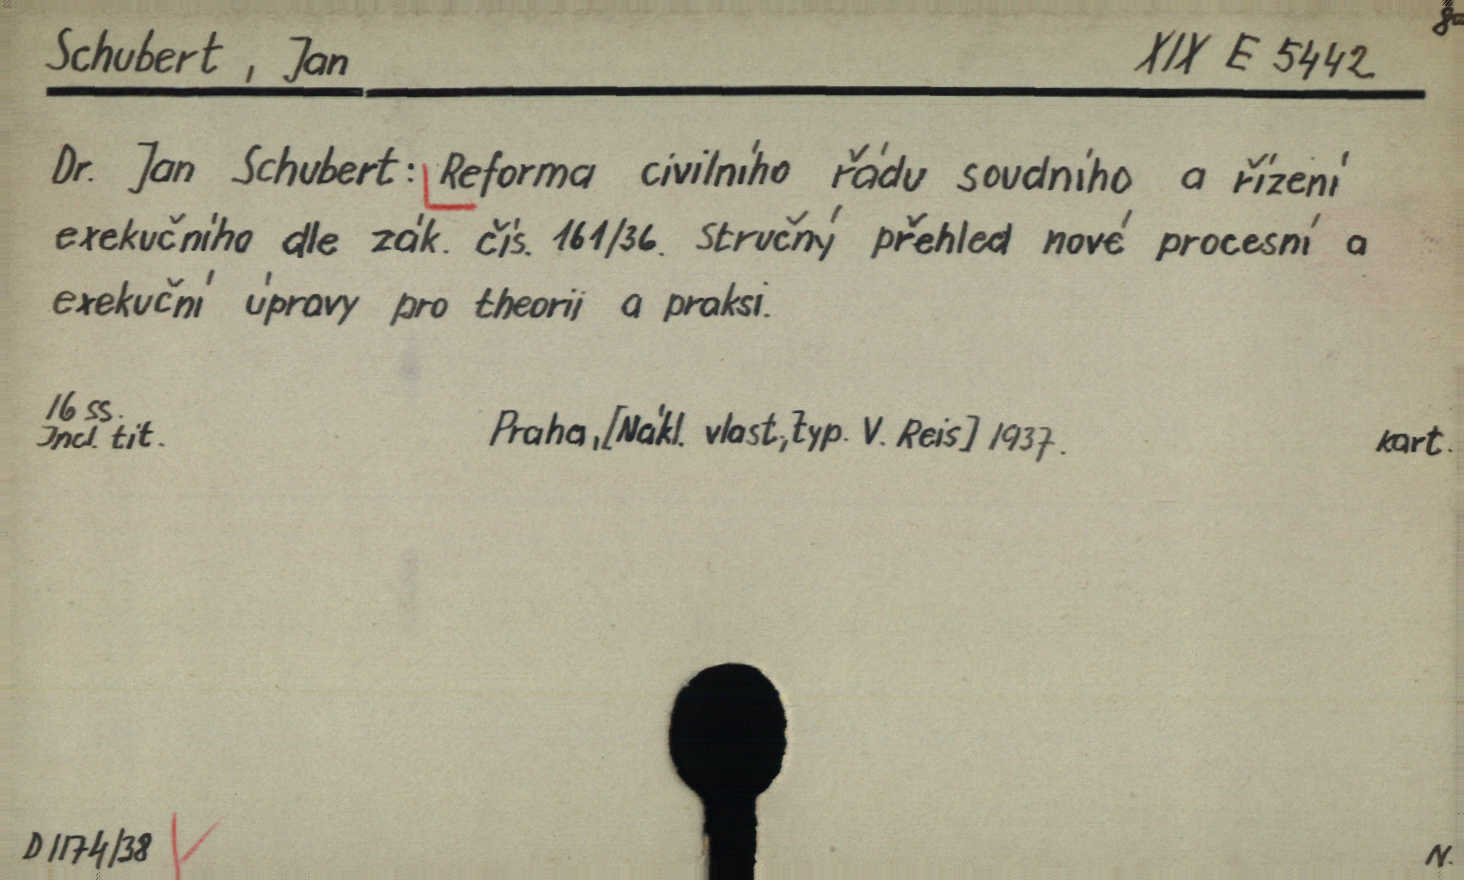 Schubert, Jan XIX E 5442
Dr. Jan Schubert: Reforma civilního řádu soudního a řízení
exekučního dle zák. čís. 161/36. Stručný přehled nové procesní a
exekuční úpravy pro theorii a praksi.
16 ss.
Incl. tit. Praha, [Nákl. vlast., typ. V. Reis] 1937. kart.
D 1174/38 N.